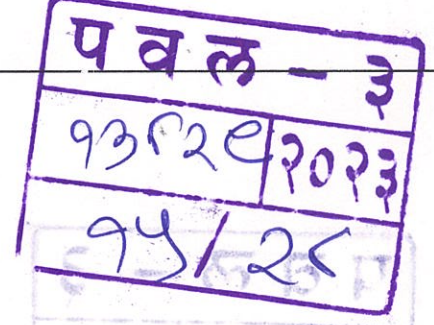 पवल - ३
१३८२९ २०२३
१५/२८